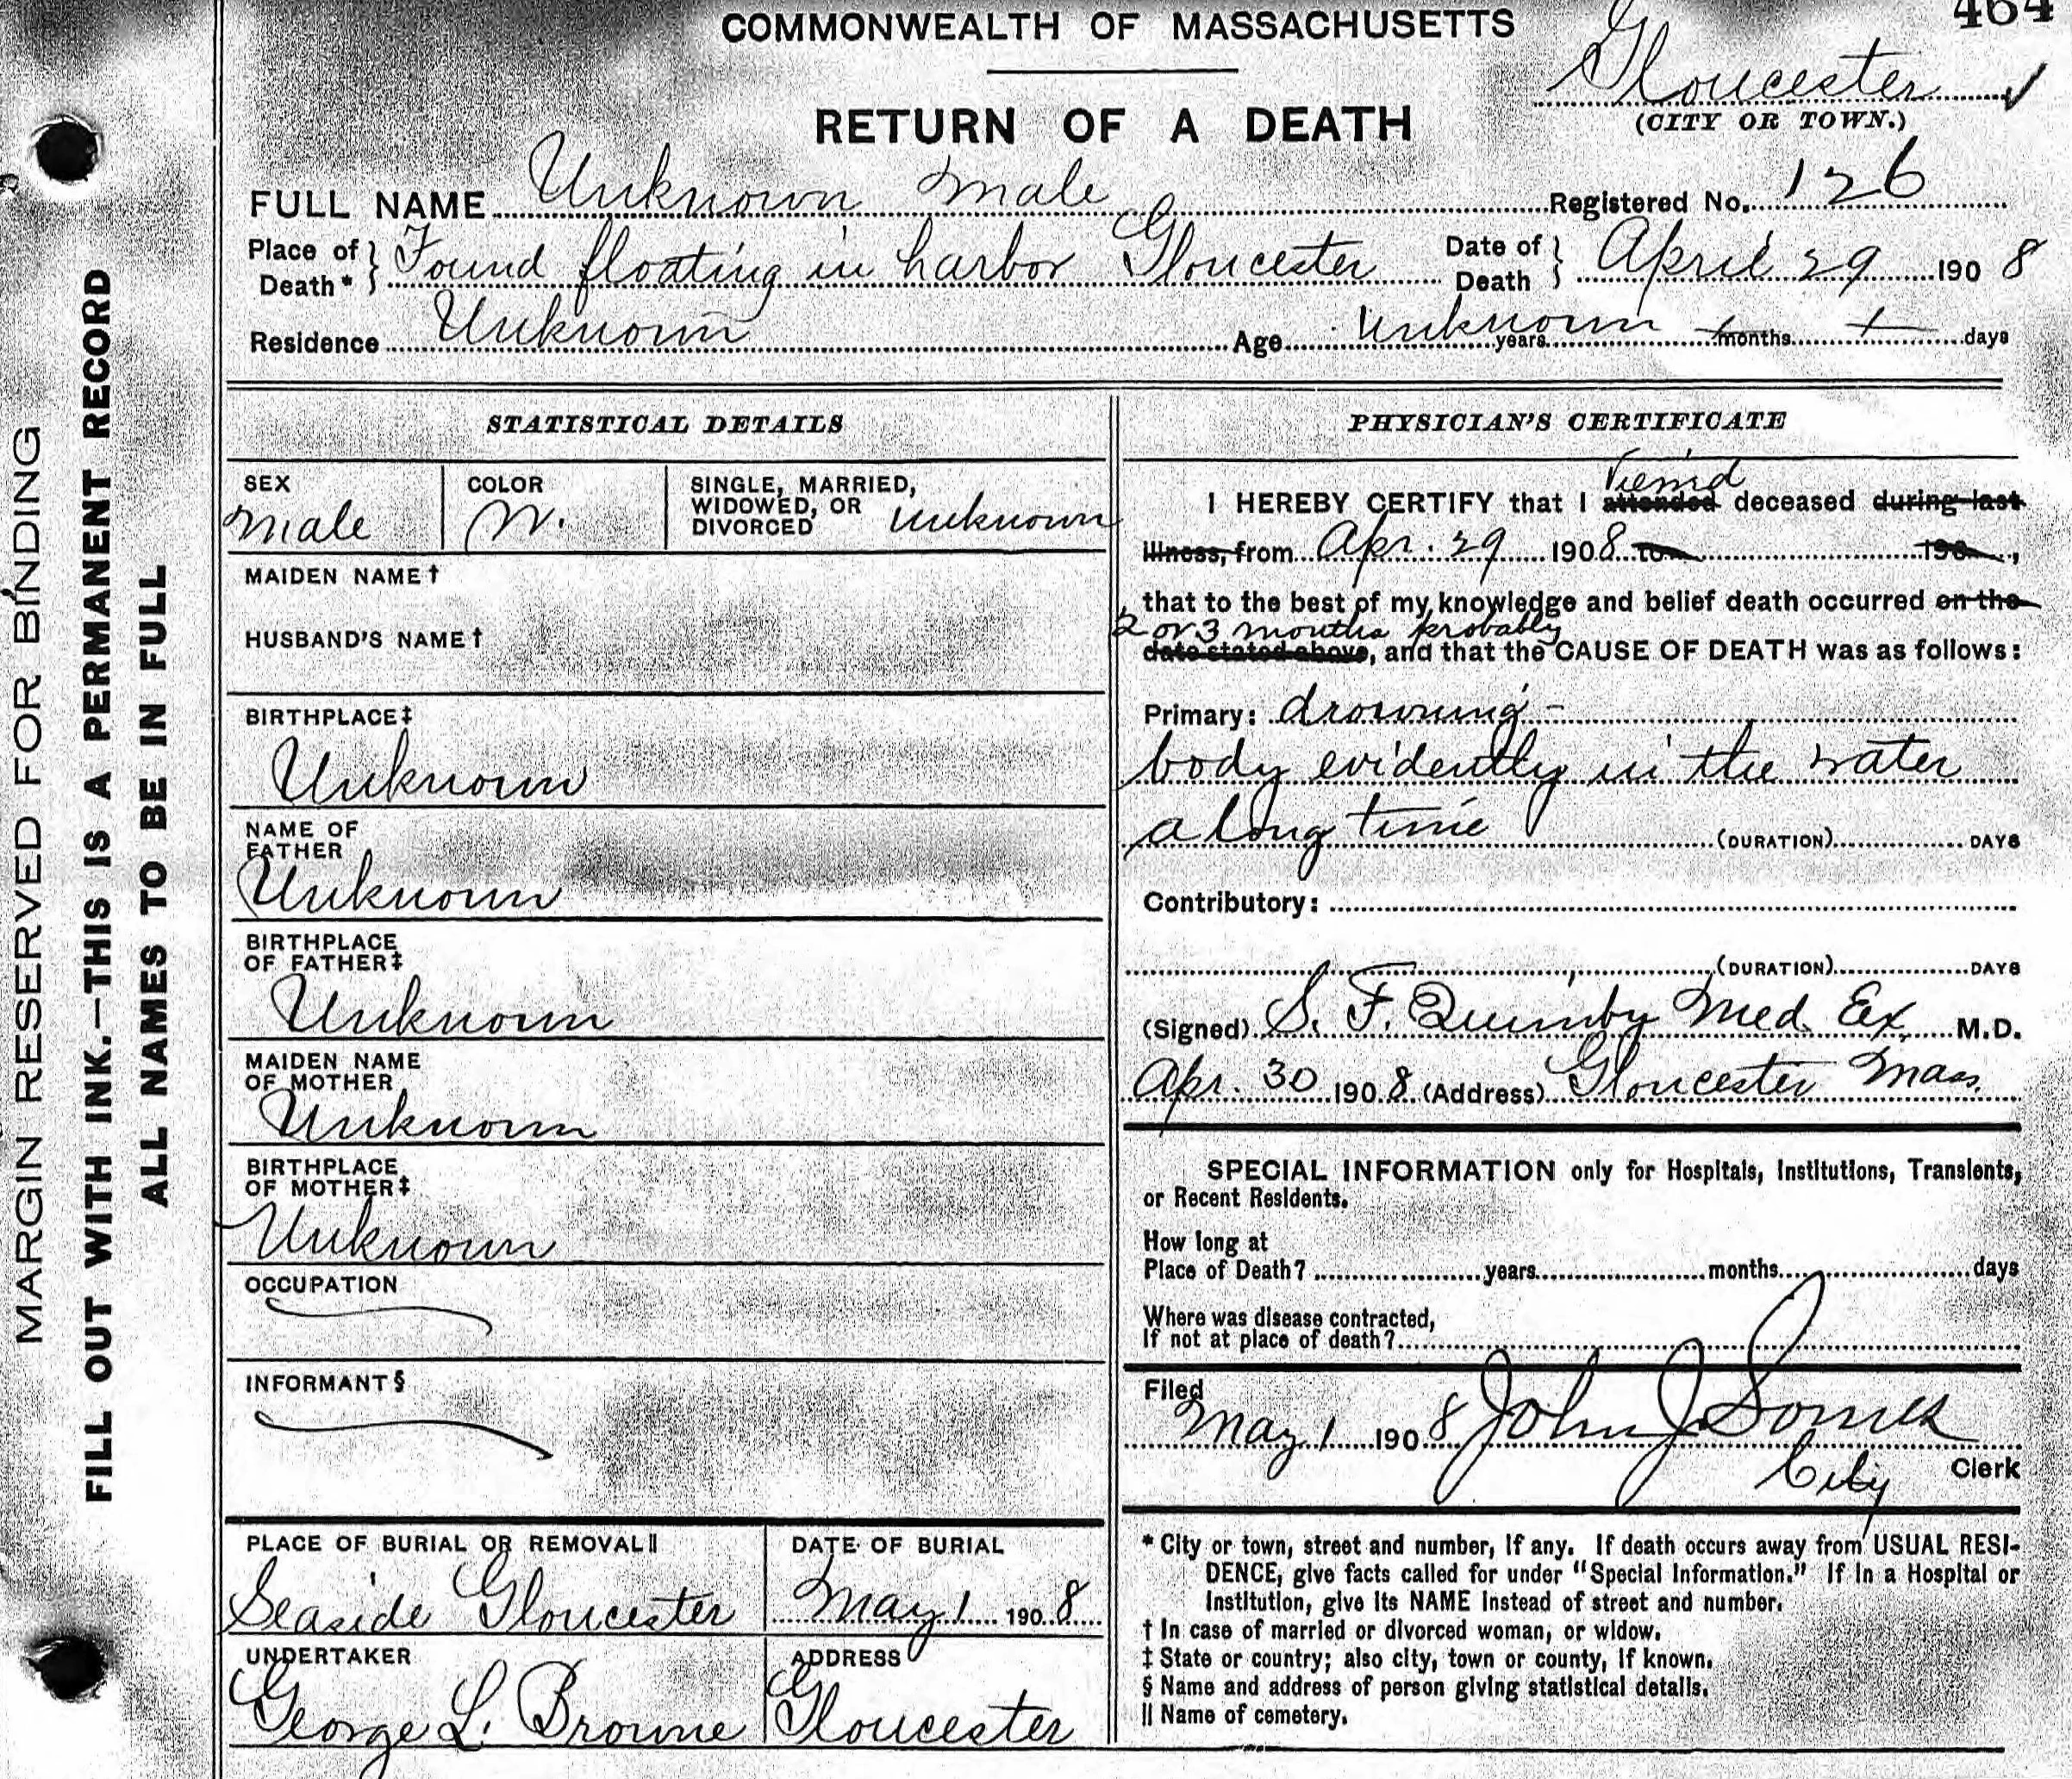 464
COMMONWEALTH OF MASSACHUSETTS
Gloucester
(CITY OR TOWN.)
RETURN OF A DEATH
FULL NAME Unknown Male Registered No. 126
Place of Death* } Found floating in harbor Gloucester Date of Death } April 29 1908
Residence Unknown Age Unknown years months days
STATISTICAL DETAILS
SEX
Male
COLOR
W.
SINGLE, MARRIED,
WIDOWED, OR
DIVORCED Unknown
MAIDEN NAME†
HUSBAND'S NAME†
BIRTHPLACE‡
Unknown
NAME OF
FATHER
Unknown
BIRTHPLACE
OF FATHER‡
Unknown
MAIDEN NAME
OF MOTHER
Unknown
BIRTHPLACE
OF MOTHER‡
Unknown
OCCUPATION
INFORMANT§
PLACE OF BURIAL OR REMOVAL||
Seaside Gloucester
DATE OF BURIAL
May 1 1908
UNDERTAKER
George L. Browne
ADDRESS
Gloucester
PHYSICIAN'S CERTIFICATE
Viewed
I HEREBY CERTIFY that I attended deceased during last
illness, from Apr. 29 1908 to 190 ,
that to the best of my knowledge and belief death occurred on the
2 or 3 months probably
date stated above, and that the CAUSE OF DEATH was as follows:
Primary: drowning -
body evidently in the water
a long time (DURATION) DAYS
Contributory:
(DURATION) DAYS
(Signed) S. F. Quimby Med. Ex. M.D.
Apr. 30 1908 (Address) Gloucester Mass.
SPECIAL INFORMATION only for Hospitals, Institutions, Transients,
or Recent Residents.
How long at
Place of Death? years months days
Where was disease contracted,
If not at place of death?
Filed
May 1 1908 John J Somes
City Clerk
* City or town, street and number, if any. If death occurs away from USUAL RESI-
DENCE, give facts called for under "Special Information." If in a Hospital or
Institution, give its NAME instead of street and number.
† In case of married or divorced woman, or widow.
‡ State or country; also city, town or county, if known.
§ Name and address of person giving statistical details.
|| Name of cemetery.
MARGIN RESERVED FOR BINDING
FILL OUT WITH INK.—THIS IS A PERMANENT RECORD
ALL NAMES TO BE IN FULL